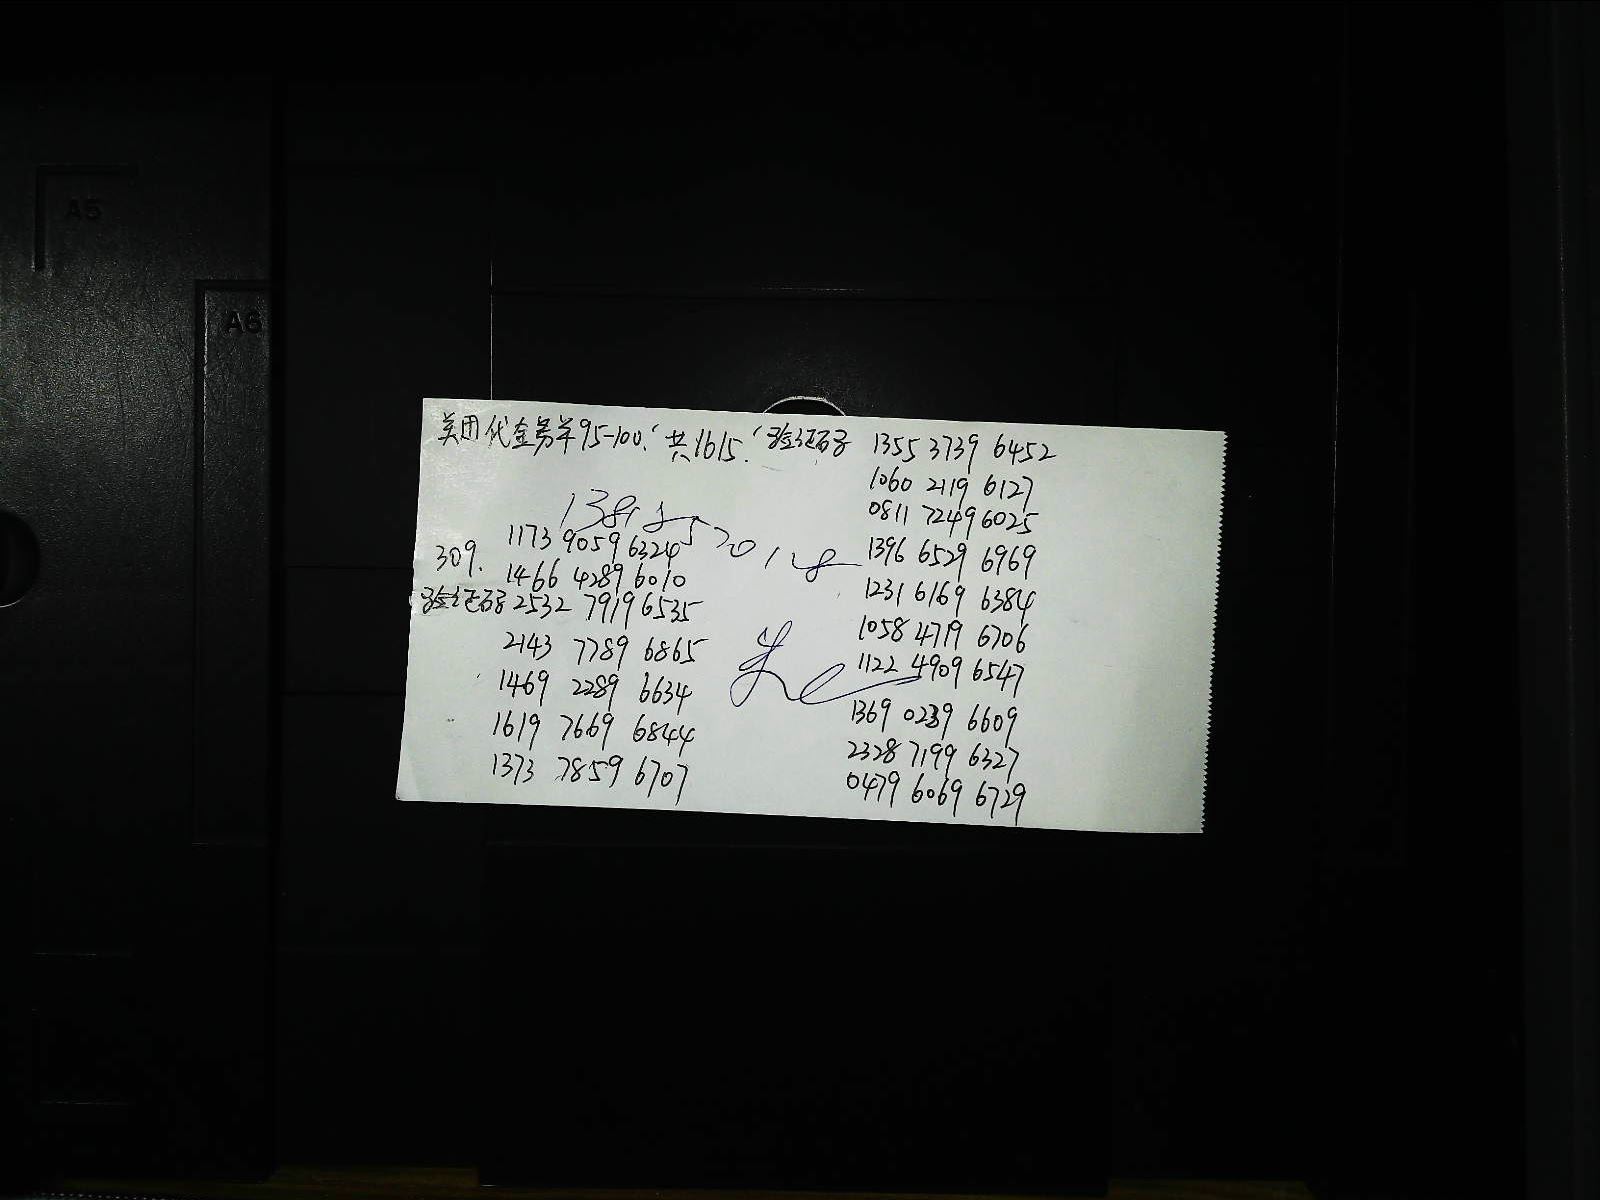 A5
A6
美团代金券单95-100.共1615.验证码 1355 3739 6452
1060 2119 6127
0811 7249 6025
1396 6529 6969
1231 6169 6384
1058 4719 6706
1122 4909 6547
1369 0239 6609
2328 7199 6327
0479 6069 6729
309.
验证码
1173 9059 6324
1466 4289 6010
2532 7919 6535
2143 7789 6865
1469 2289 6634
1619 7669 6844
1373 7859 6707